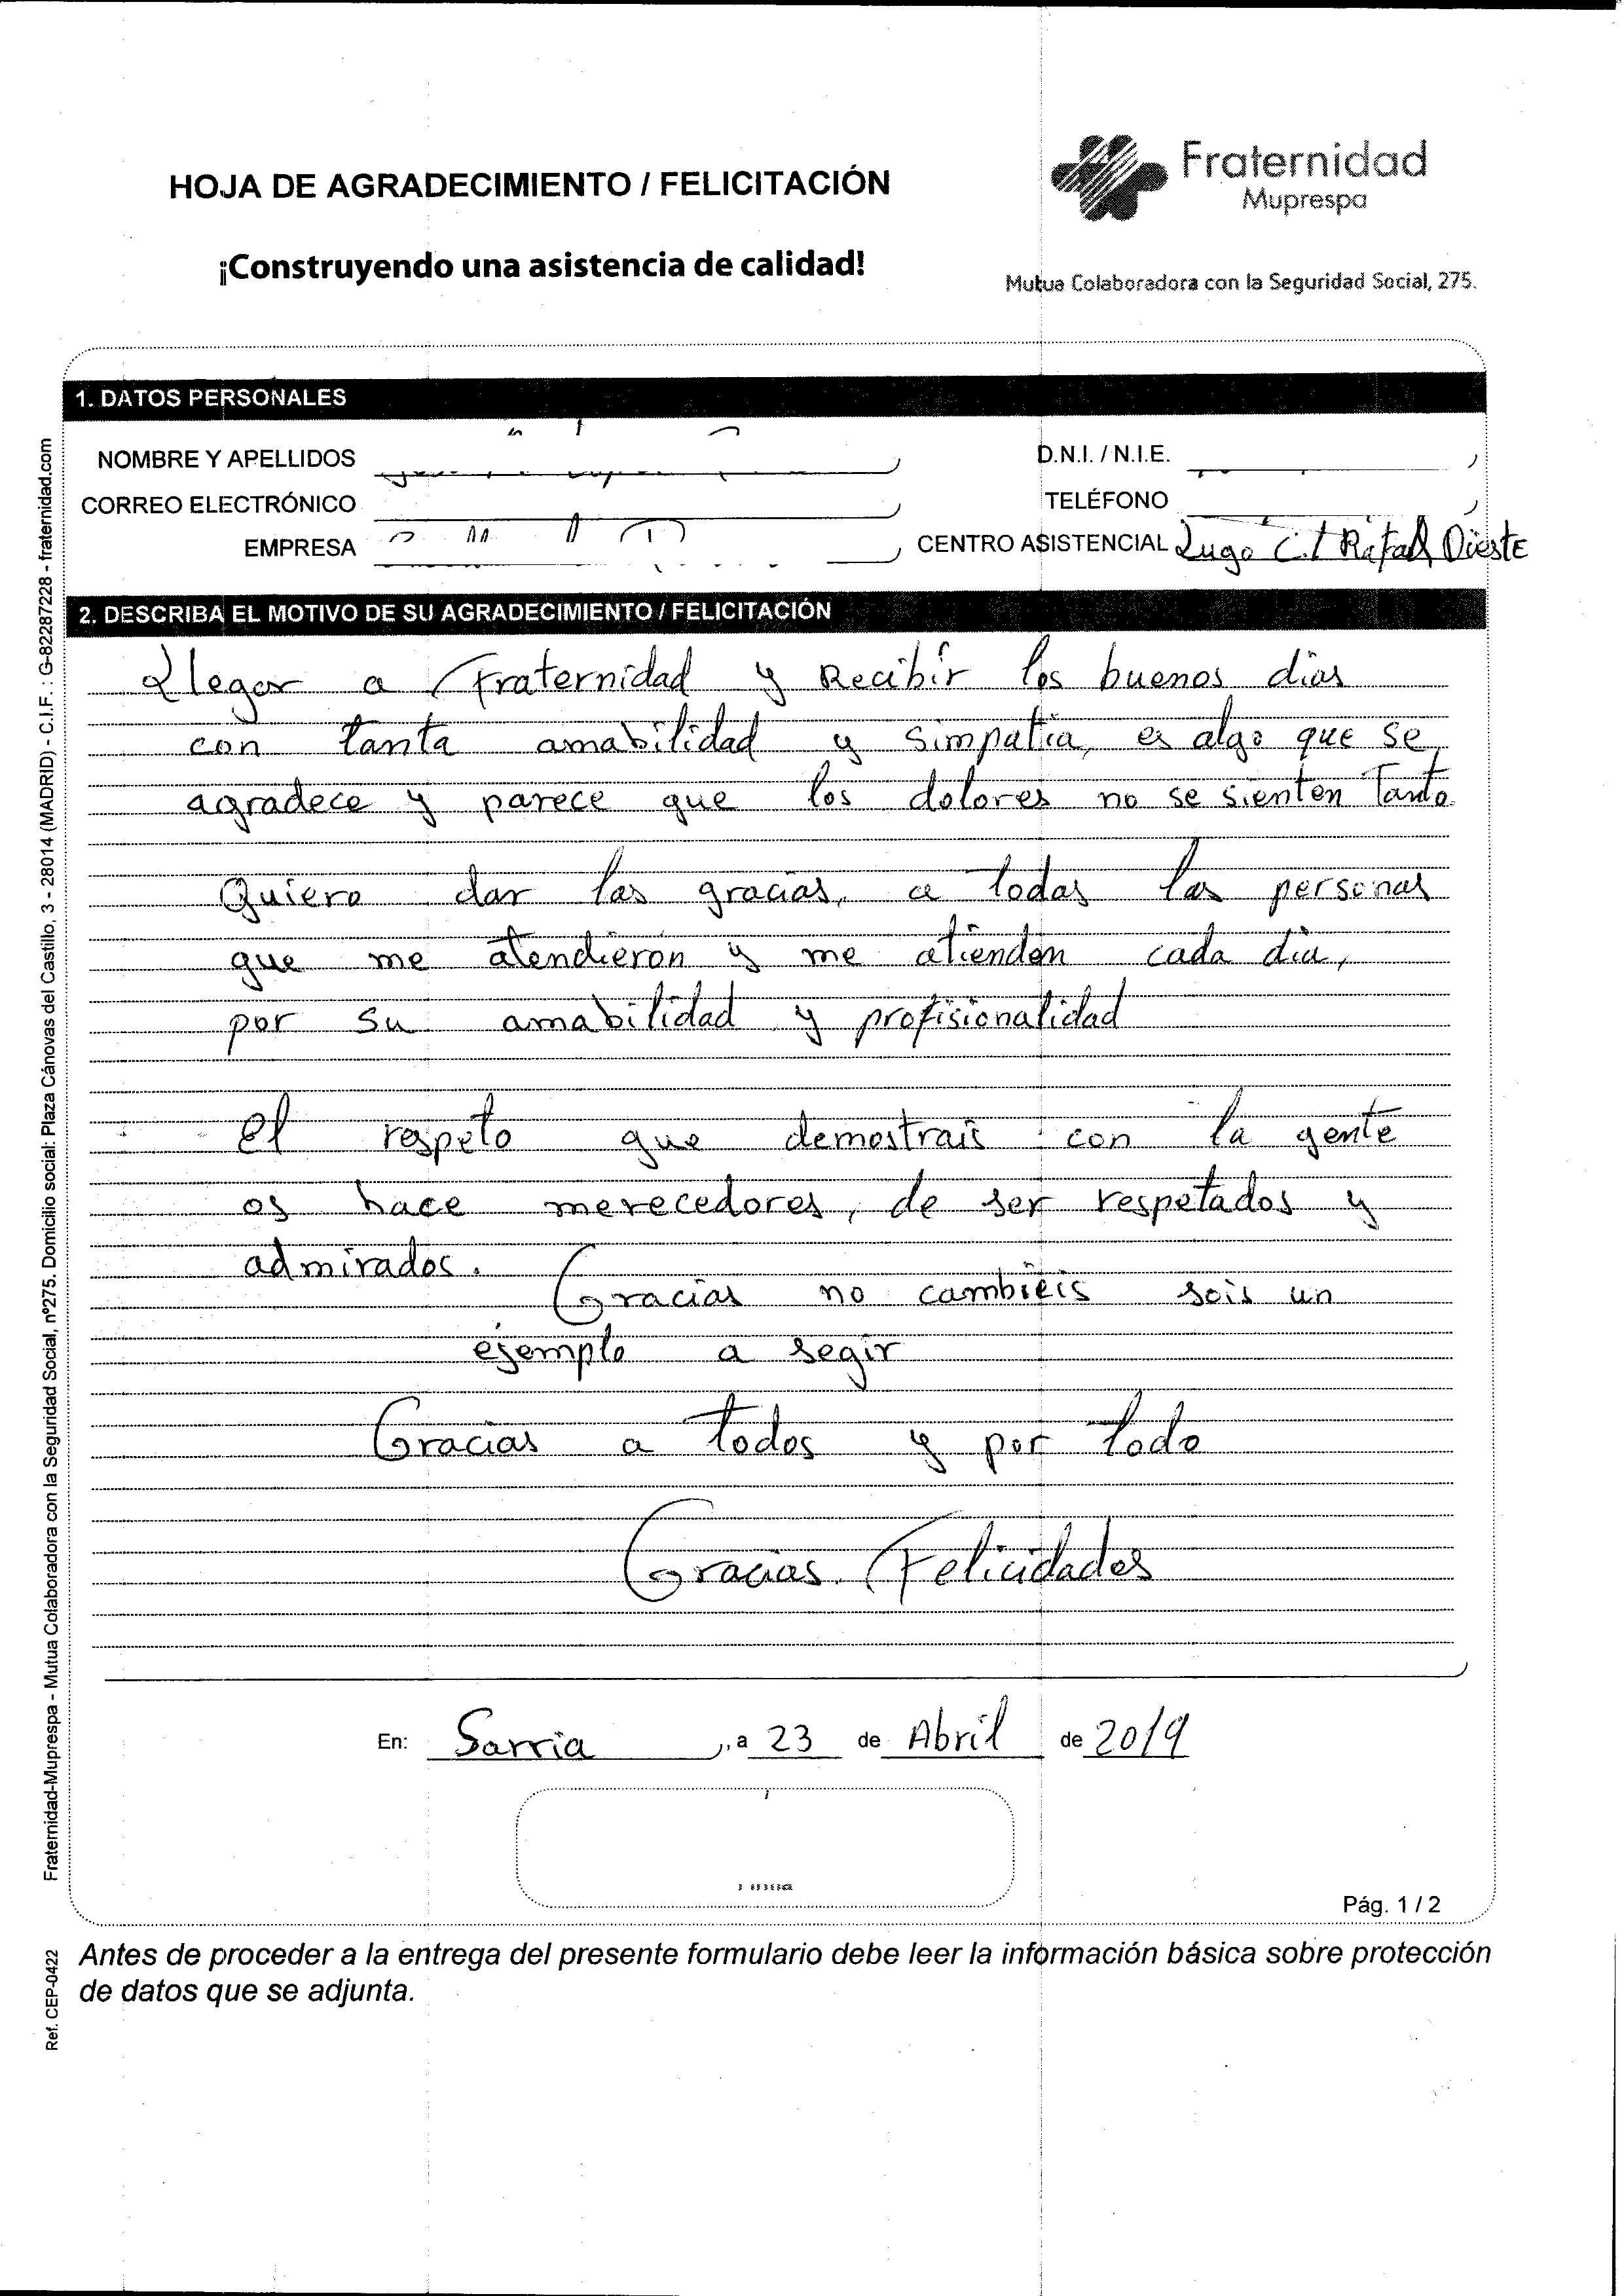 HOJA DE AGRADECIMIENTO / FELICITACIÓN
¡Construyendo una asistencia de calidad!
Fraternidad
Muprespa
Mutua Colaboradora con la Seguridad Social, 275.
1. DATOS PERSONALES
NOMBRE Y APELLIDOS
D.N.I. / N.I.E.
CORREO ELECTRÓNICO
TELÉFONO
EMPRESA
CENTRO ASISTENCIAL Lugo C/ Rafael Dieste
2. DESCRIBA EL MOTIVO DE SU AGRADECIMIENTO / FELICITACIÓN
Llegar a Fraternidad y Recibir los buenos dias
con tanta amabilidad y simpatia, es algo que se
agradece y parece que los dolores no se sienten Tanto
Quiero dar las gracias, a todas las personas
que me atendierón y me atienden cada dia,
por su amabilidad y profisionalidad
el respeto que demostrais con la gente
os hace merecedores, de ser respetados y
admirados.
Gracias no cambieis sois un
ejemplo a segir
Gracias a todos y por todo
Gracias. Felicidades
En: Sarria, a 23 de Abril de 2019
Pág. 1 / 2
Antes de proceder a la entrega del presente formulario debe leer la información básica sobre protección
de datos que se adjunta.
Fraternidad-Muprespa - Mutua Colaboradora con la Seguridad Social, nº275. Domicilio social: Plaza Cánovas del Castillo, 3 - 28014 (MADRID) - C.I.F. : G-82287228 - fraternidad.com
Ref. CEP-0422